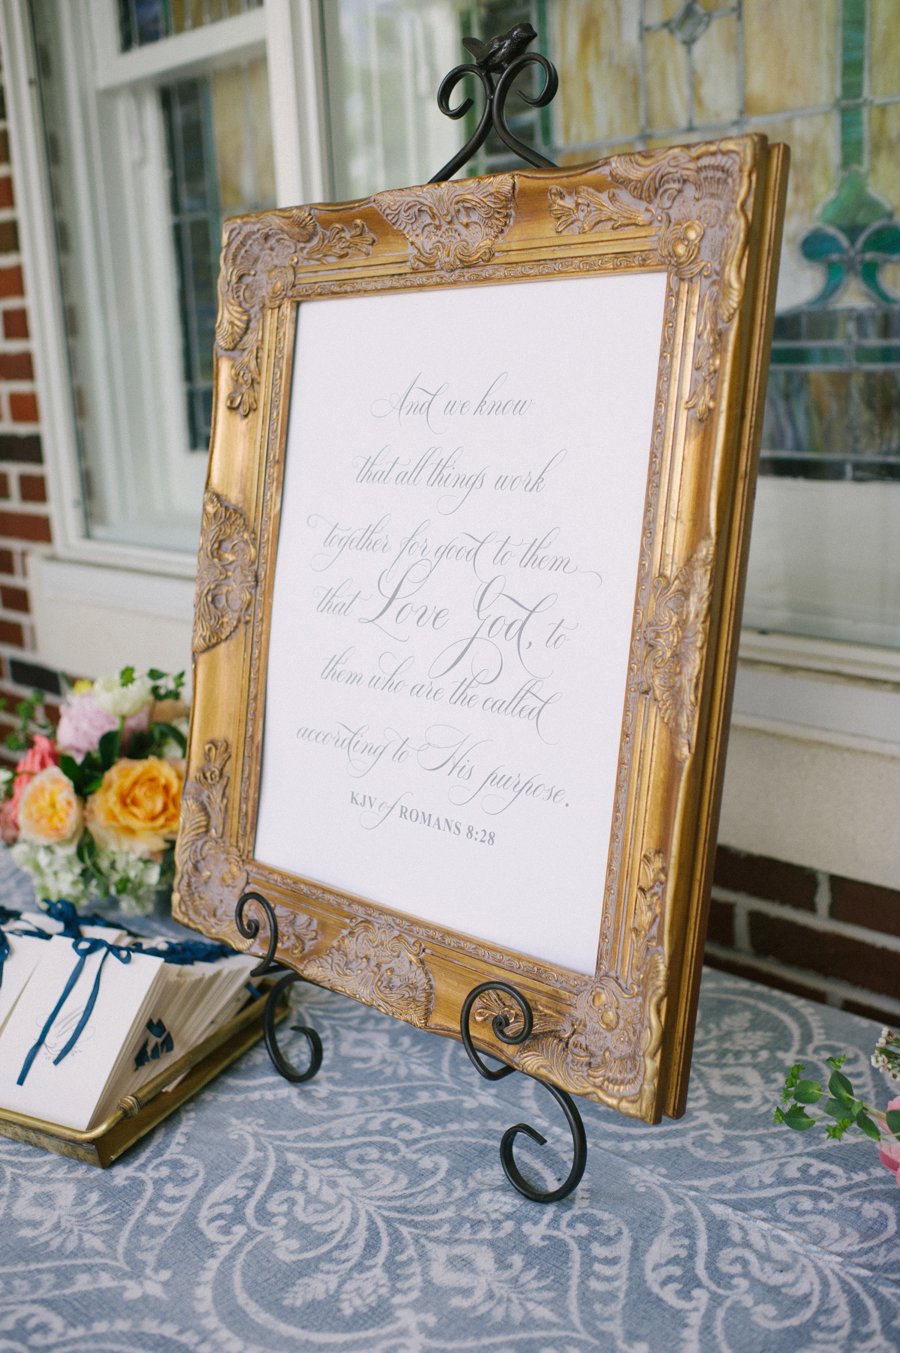 And we know
that all things work
together for good to them
that Love God, to
them who are the called
according to His purpose.
KJV of ROMANS 8:28